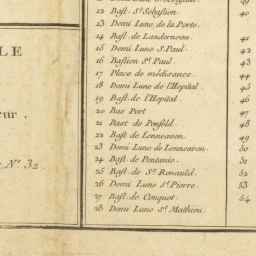 12 Bast. St Sebastien
13 Demi Lune de la Porte.
14 Bast. de Landernau
15 Demi Lune St Paul
16 Bastion St Paul
17 Place de médisance.
18 Demi Lune de l'Hopital
19 Bast. de l'Hopital
20 Bas Fort
21 Bast de Penfeld
22 Bast. de Lennearon
23 Demi Lune de Lennearon.
24 Bast. de Pontanio.
25 Bast. de St Renauld.
26 Demi Lune St Pierre.
27 Bast. de Conquet.
28 Demi Lune St Mathieu
LE
eur.
N.º 32
40
41
42
43
44
45
46
47
48
49
50
51
52
53
54